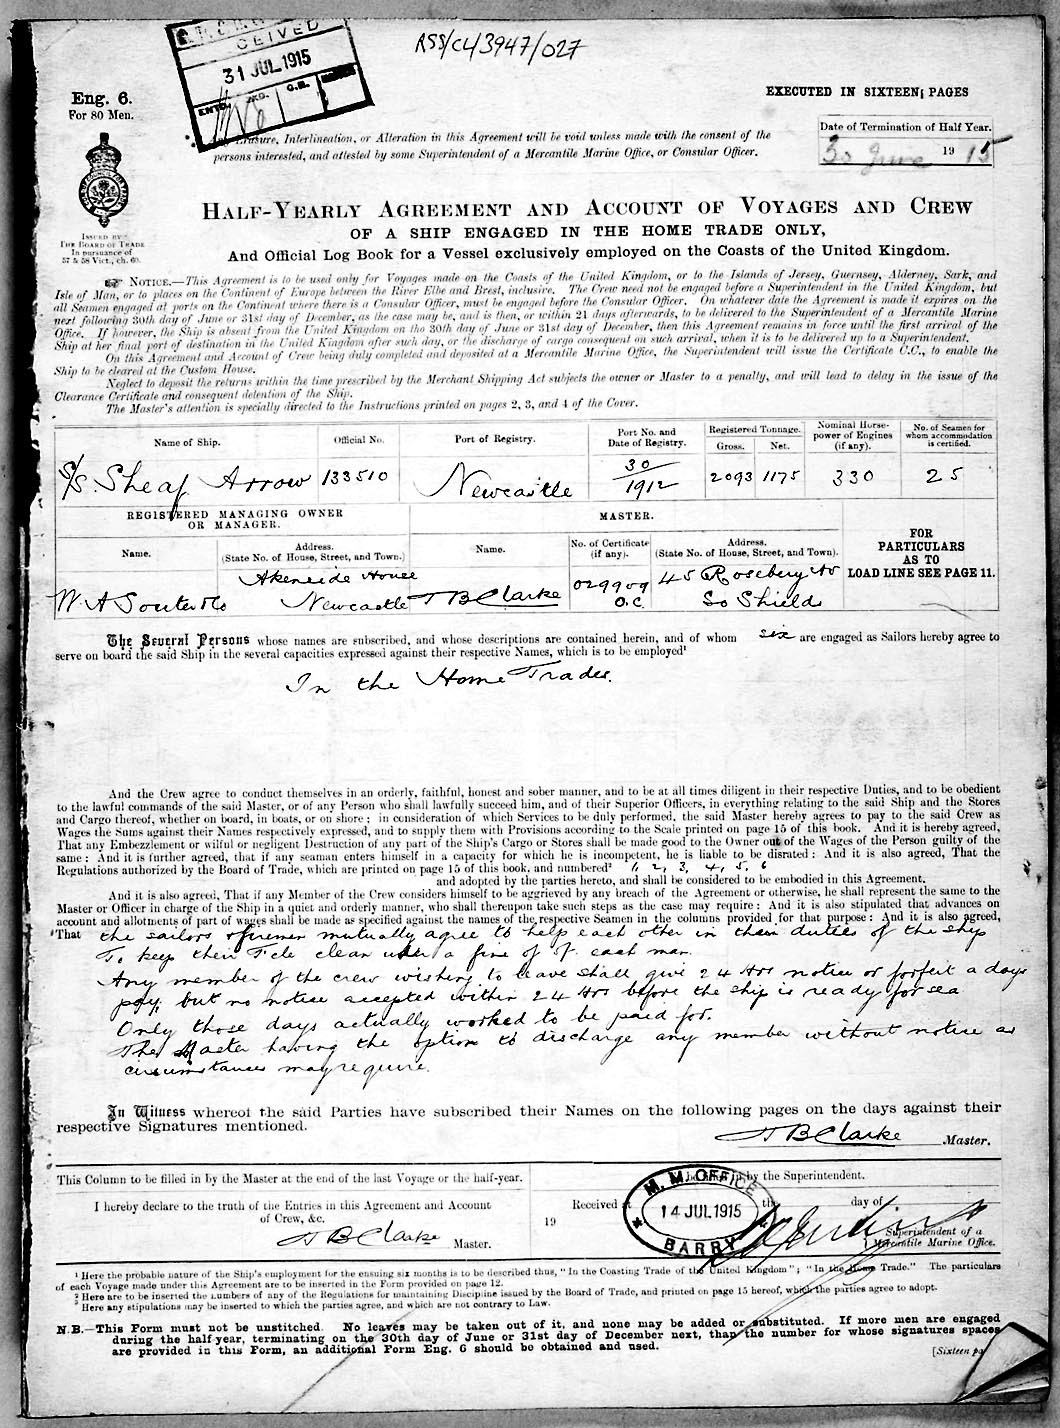 RSS/CL/3947/027
CEIVED
31 JUL 1915
Eng. 6.
For 80 Men.
EXECUTED IN SIXTEEN PAGES
Erasure, Interlineation, or Alteration in this Agreement will be void unless made with the consent of the
persons interested, and attested by some Superintendent of a Mercantile Marine Office, or Consular Officer.
Date of Termination of Half Year.
30 June 19 15
ISSUED BY
THE BOARD OF TRADE
In pursuance of
57 & 58 Vict., ch. 60.
HALF-YEARLY AGREEMENT AND ACCOUNT OF VOYAGES AND CREW
OF A SHIP ENGAGED IN THE HOME TRADE ONLY,
And Official Log Book for a Vessel exclusively employed on the Coasts of the United Kingdom.
NOTICE.—This Agreement is to be used only for Voyages made on the Coasts of the United Kingdom, or to the Islands of Jersey, Guernsey, Alderney, Sark, and
Isle of Man, or to places on the Continent of Europe between the River Elbe and Brest, inclusive. The Crew need not be engaged before a Superintendent in the United Kingdom, but
all Seamen engaged at ports on the Continent where there is a Consular Officer, must be engaged before the Consular Officer. On whatever date the Agreement is made it expires on the
next following 30th day of June or 31st day of December, as the case may be, and is then, or within 21 days afterwards, to be delivered to the Superintendent of a Mercantile Marine
Office. If however, the Ship is absent from the United Kingdom on the 30th day of June or 31st day of December, then this Agreement remains in force until the first arrival of the
Ship at her final port of destination in the United Kingdom after such day, or the discharge of cargo consequent on such arrival, when it is to be delivered up to a Superintendent.
On this Agreement and Account of Crew being duly completed and deposited at a Mercantile Marine Office, the Superintendent will issue the Certificate C.C., to enable the
Ship to be cleared at the Custom House.
Neglect to deposit the returns within the time prescribed by the Merchant Shipping Act subjects the owner or Master to a penalty, and will lead to delay in the issue of the
Clearance Certificate and consequent detention of the Ship.
The Master's attention is specially directed to the Instructions printed on pages 2, 3, and 4 of the Cover.
Name of Ship. Official No. Port of Registry. Port No. and Date of Registry. Registered Tonnage. Gross. Net. Nominal Horse-power of Engines (if any). No. of Seamen for whom accommodation is certified.
S/S. Sheaf Arrow 133510 Newcastle 30/1912 2093 1175 330 25
REGISTERED MANAGING OWNER OR MANAGER. MASTER.
Name. Address. (State No. of House, Street, and Town.) Name. No. of Certificate (if any). Address. (State No. of House, Street, and Town).
FOR PARTICULARS AS TO LOAD LINE SEE PAGE 11.
W A Souter & Co Akenside House Newcastle T B Clarke 029909 O.C. 45 Rosebery Av So Shields
The Several Persons whose names are subscribed, and whose descriptions are contained herein, and of whom six are engaged as Sailors hereby agree to
serve on board the said Ship in the several capacities expressed against their respective Names, which is to be employed¹
In the Home Trades.
And the Crew agree to conduct themselves in an orderly, faithful, honest and sober manner, and to be at all times diligent in their respective Duties, and to be obedient
to the lawful commands of the said Master, or of any Person who shall lawfully succeed him, and of their Superior Officers, in everything relating to the said Ship and the Stores
and Cargo thereof, whether on board, in boats, or on shore; in consideration of which Services to be duly performed, the said Master hereby agrees to pay to the said Crew as
Wages the Sums against their Names respectively expressed, and to supply them with Provisions according to the Scale printed on page 15 of this book. And it is hereby agreed,
That any Embezzlement or wilful or negligent Destruction of any part of the Ship's Cargo or Stores shall be made good to the Owner out of the Wages of the Person guilty of the
same: And it is further agreed, that if any seaman enters himself in a capacity for which he is incompetent, he is liable to be disrated: And it is also agreed, That the
Regulations authorized by the Board of Trade, which are printed on page 15 of this book, and numbered² 1, 2, 3, 4, 5, 6
and adopted by the parties hereto, and shall be considered to be embodied in this Agreement.
And it is also agreed, That if any Member of the Crew considers himself to be aggrieved by any breach of the Agreement or otherwise, he shall represent the same to the
Master or Officer in charge of the Ship in a quiet and orderly manner, who shall thereupon take such steps as the case may require: And it is also stipulated that advances on
account and allotments of part of wages shall be made as specified against the names of the respective Seamen in the columns provided for that purpose: And it is also agreed,
³That the sailors & firemen mutually agree to help each other in their duties of the ship
To keep their F'cle clean under a fine of 5/- each man.
Any member of the crew wishing to leave shall give 24 Hrs notice or forfeit a days
pay, but no notice accepted within 24 Hrs before the ship is ready for sea
Only those days actually worked to be paid for.
The Master having the option to discharge any member without notice as
circumstances may require.
In Witness whereof the said Parties have subscribed their Names on the following pages on the days against their
respective Signatures mentioned.
T B Clarke Master.
This Column to be filled in by the Master at the end of the last Voyage or the half-year.
I hereby declare to the truth of the Entries in this Agreement and Account
of Crew, &c.
T B Clarke Master.
by the Superintendent.
Received at the day of
19
M. M. OFFICE
14 JUL 1915
BARRY
Superintendent of a
Mercantile Marine Office.
¹ Here the probable nature of the Ship's employment for the ensuing six months is to be described thus, "In the Coasting Trade of the United Kingdom"; "In the Home Trade." The particulars
of each Voyage made under this Agreement are to be inserted in the Form provided on page 12.
² Here are to be inserted the numbers of any of the Regulations for maintaining Discipline issued by the Board of Trade, and printed on page 15 hereof, which the parties agree to adopt.
³ Here any stipulations may be inserted to which the parties agree, and which are not contrary to Law.
N.B.—This Form must not be unstitched. No leaves may be taken out of it, and none may be added or substituted. If more men are engaged
during the half-year, terminating on the 30th day of June or 31st day of December next, than the number for whose signatures spaces
are provided in this Form, an additional Form Eng. 6 should be obtained and used.
[Sixteen